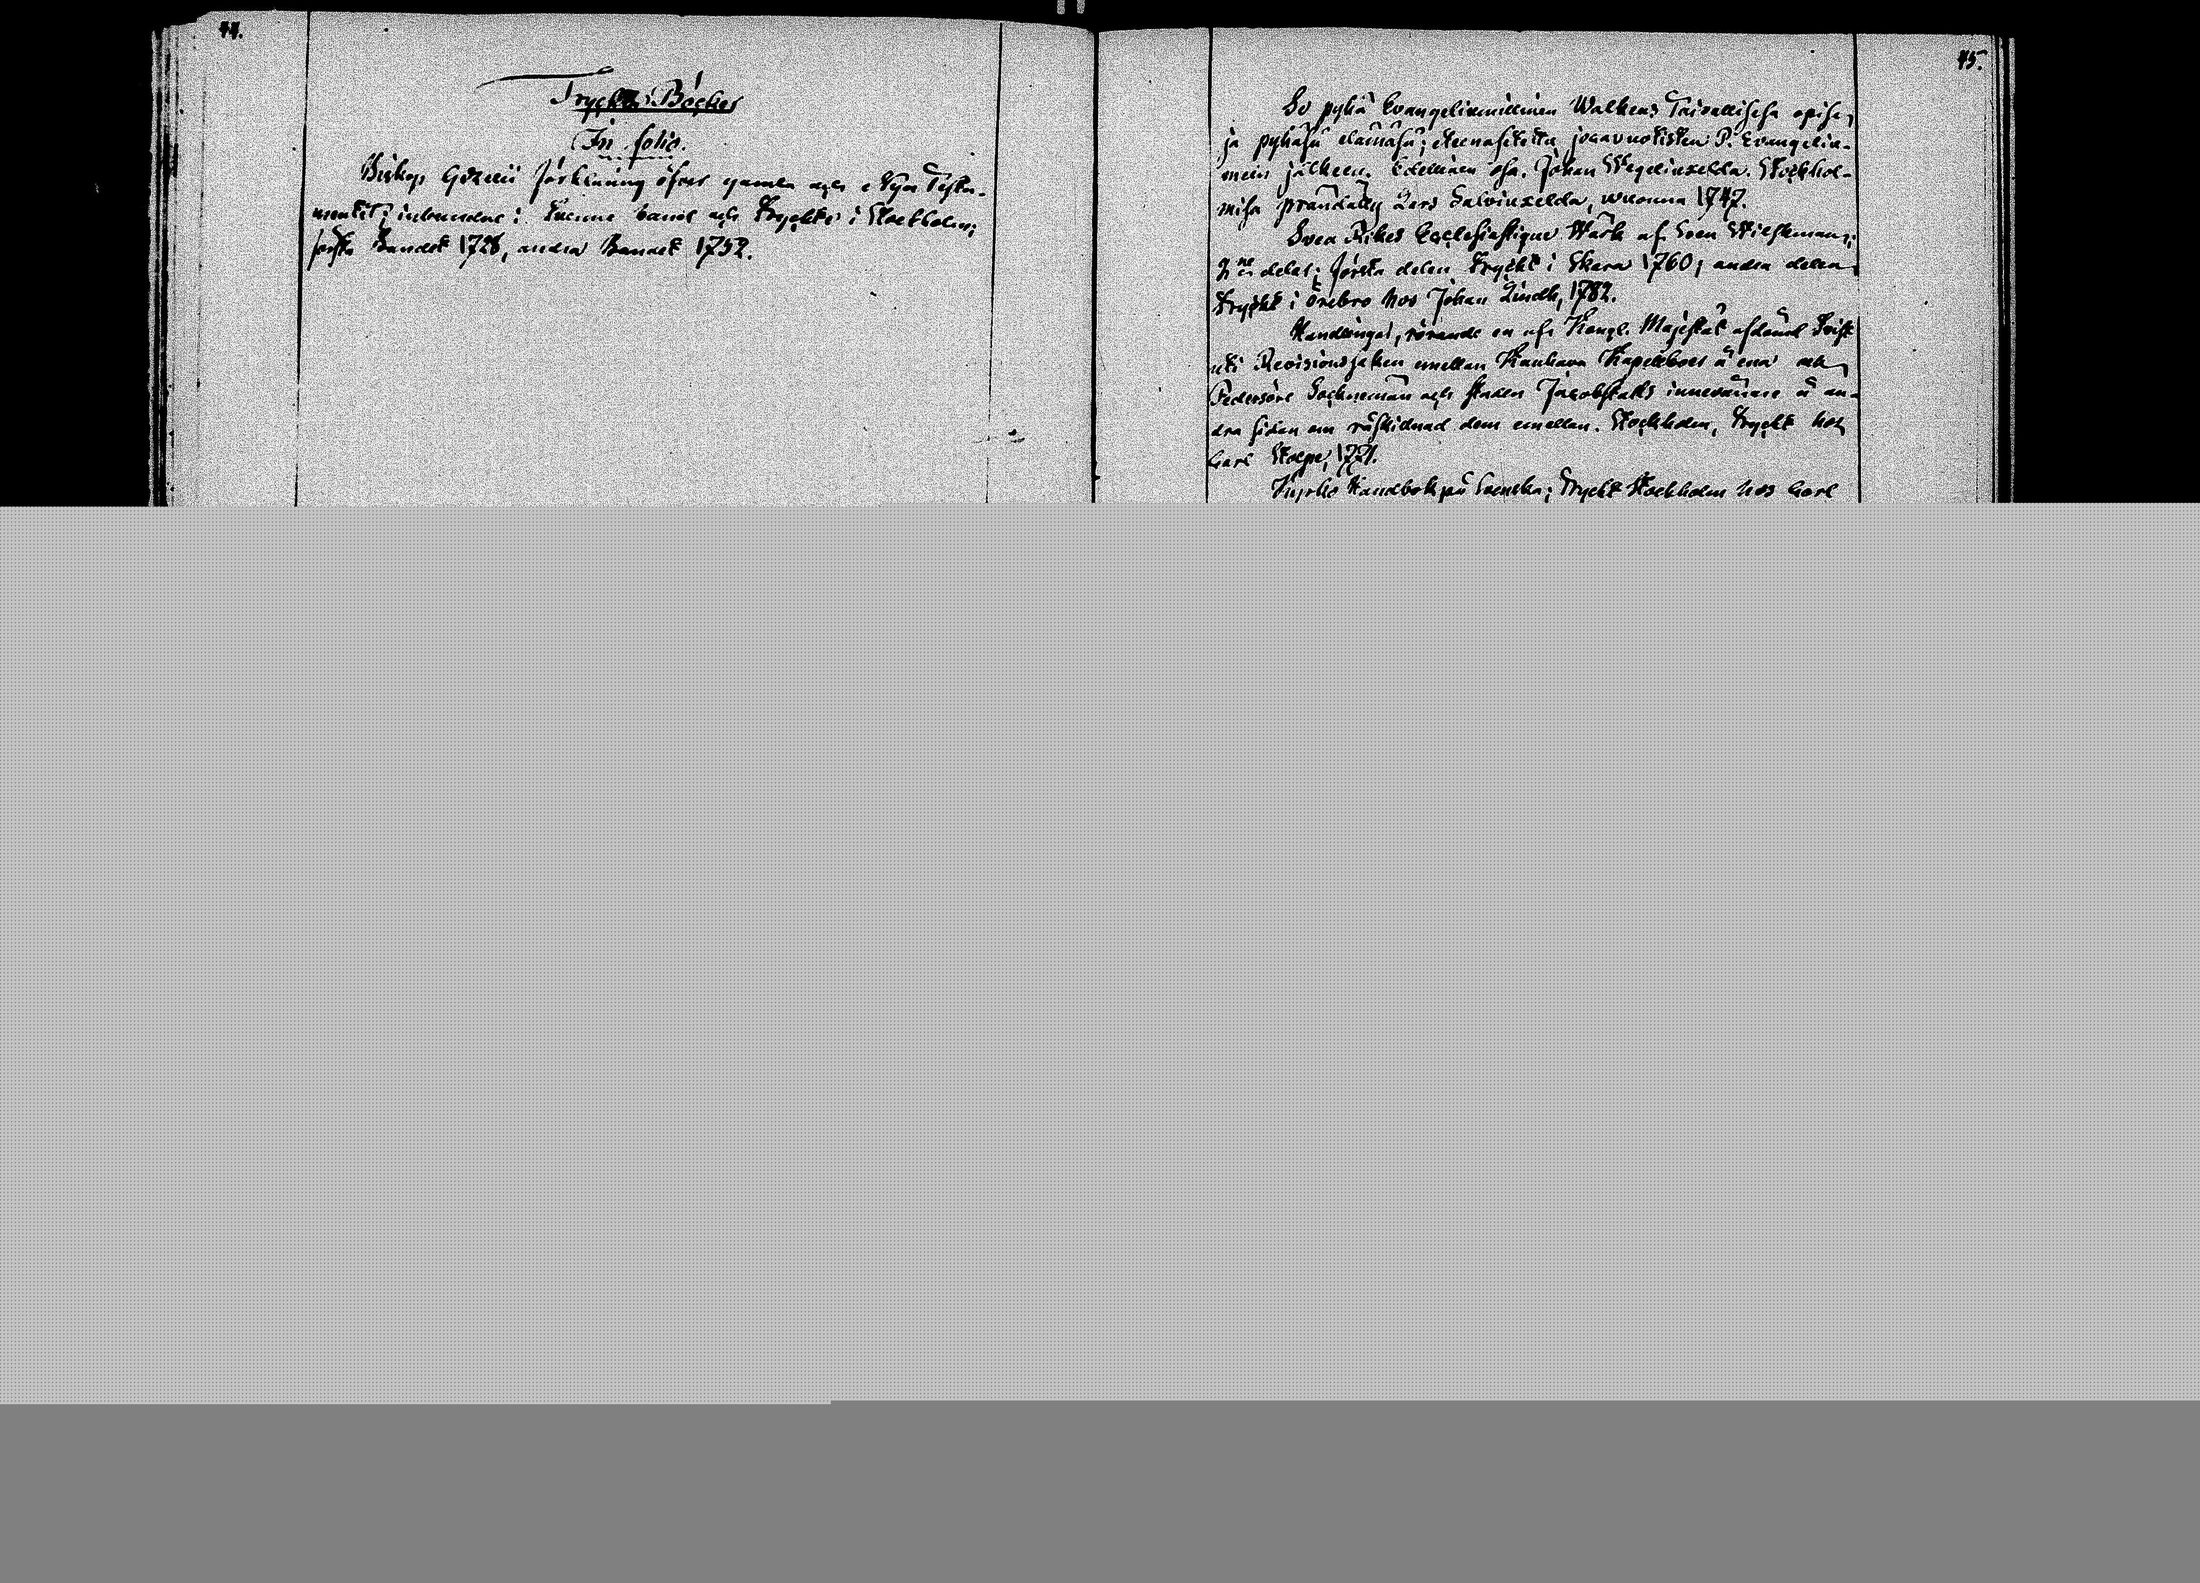 44.
Tryckta Böcker
In folio.
Biskop Gezelii förklaring öfver gamla och Nya Testa-
mentet; inbundne i tvenne band och Tryckte i Stockholm;
första Bandet 1728, andra Bandet 1752.
45.
Se pyhä Evangeliumillinen Walkeus Taivallisesa opisa,
ja pyhäsä elämäsä; jokavuotisten P. Evangeliu-
mein jälkeen. Edellinen osa. Johan Wegeliuxelda. Stockhol-
misa prändätty Lars Salviuxelda, wuonna 1747.
Svea Rikes Ecclesiastique Wärk af Sven Wilskman;
2ne delar; första delen tryckt i Skara 1760; andra delen
tryckt i Örebro hos Johan Lindh, 1782.
Handlingar, rörande en af Kongl. Majestät afdömd Tvist
uti Revisionssaken emellan Kauhava Kapellboer å ena och
Pedersöre Socknemän och staden Jacobstads innevånare å an-
dra sidan om råskildnad dem emellan. Stockholm, tryckt hos
Carl Stolpe, 1771.
Kyrko Handbok på Svenska; Tryckt Stockholm hos Carl